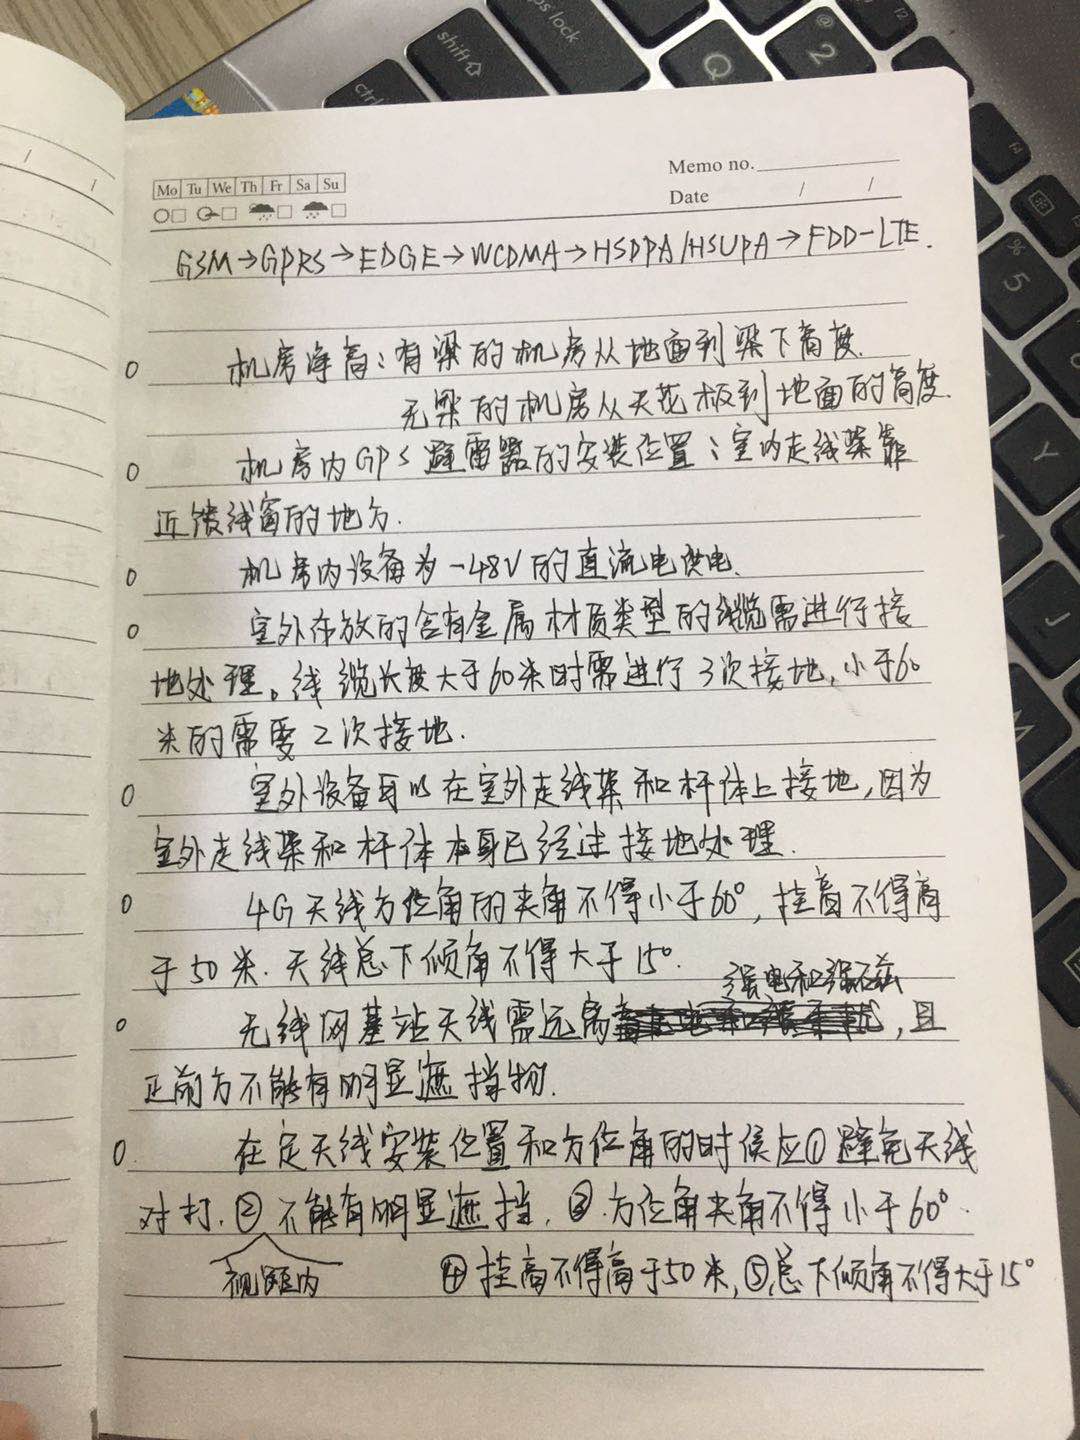 Mo Tu We Th Fr Sa Su
Memo no.
Date / /
GSM→GPRS→EDGE→WCDMA→HSDPA/HSUPA→FDD-LTE.
机房净高：有梁的机房从地面到梁下高度.
无梁的机房从天花板到地面的高度.
机房内GPS避雷器的安装位置：室内走线架靠
近馈线窗的地方.
机房内设备为-48V的直流电供电.
室外布放的含有金属材质类型的线缆需进行接
地处理。线缆长度大于60米时需进行3次接地,小于60
米的需要2次接地.
室外设备可以在室外走线架和杆体上接地,因为
室外走线架和杆体本身已经过接地处理.
4G天线方位角的夹角不得小于60°,挂高不得高
于50米.天线总下倾角不得大于15°.
强电和强磁
无线网基站天线需远离,且
正前方不能有明显遮挡物.
在定天线安装位置和方位角的时候应①避免天线
对打.②不能有明显遮挡.③.方位角夹角不得小于60°.
视距内
④挂高不得高于50米,⑤总下倾角不得大于15°
ctrl
shift
caps lock
Q
@
2
%
5
Y
J
M